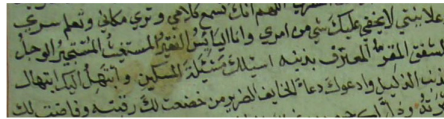 اللهم انك تسمع كلامي وترى مكاني وتعلم سري
لا يخفى عليك شي من امري وانا البائس الفقير المستغيث المستجير الوجل
المشفق المقر المعترف بذنبه اسئلك مسئلة المسكين وابتهل اليك ابتهال
المذنب الذليل وادعوك دعاء الخايف الضرير من خضعت لك رقبته وفاضت لك